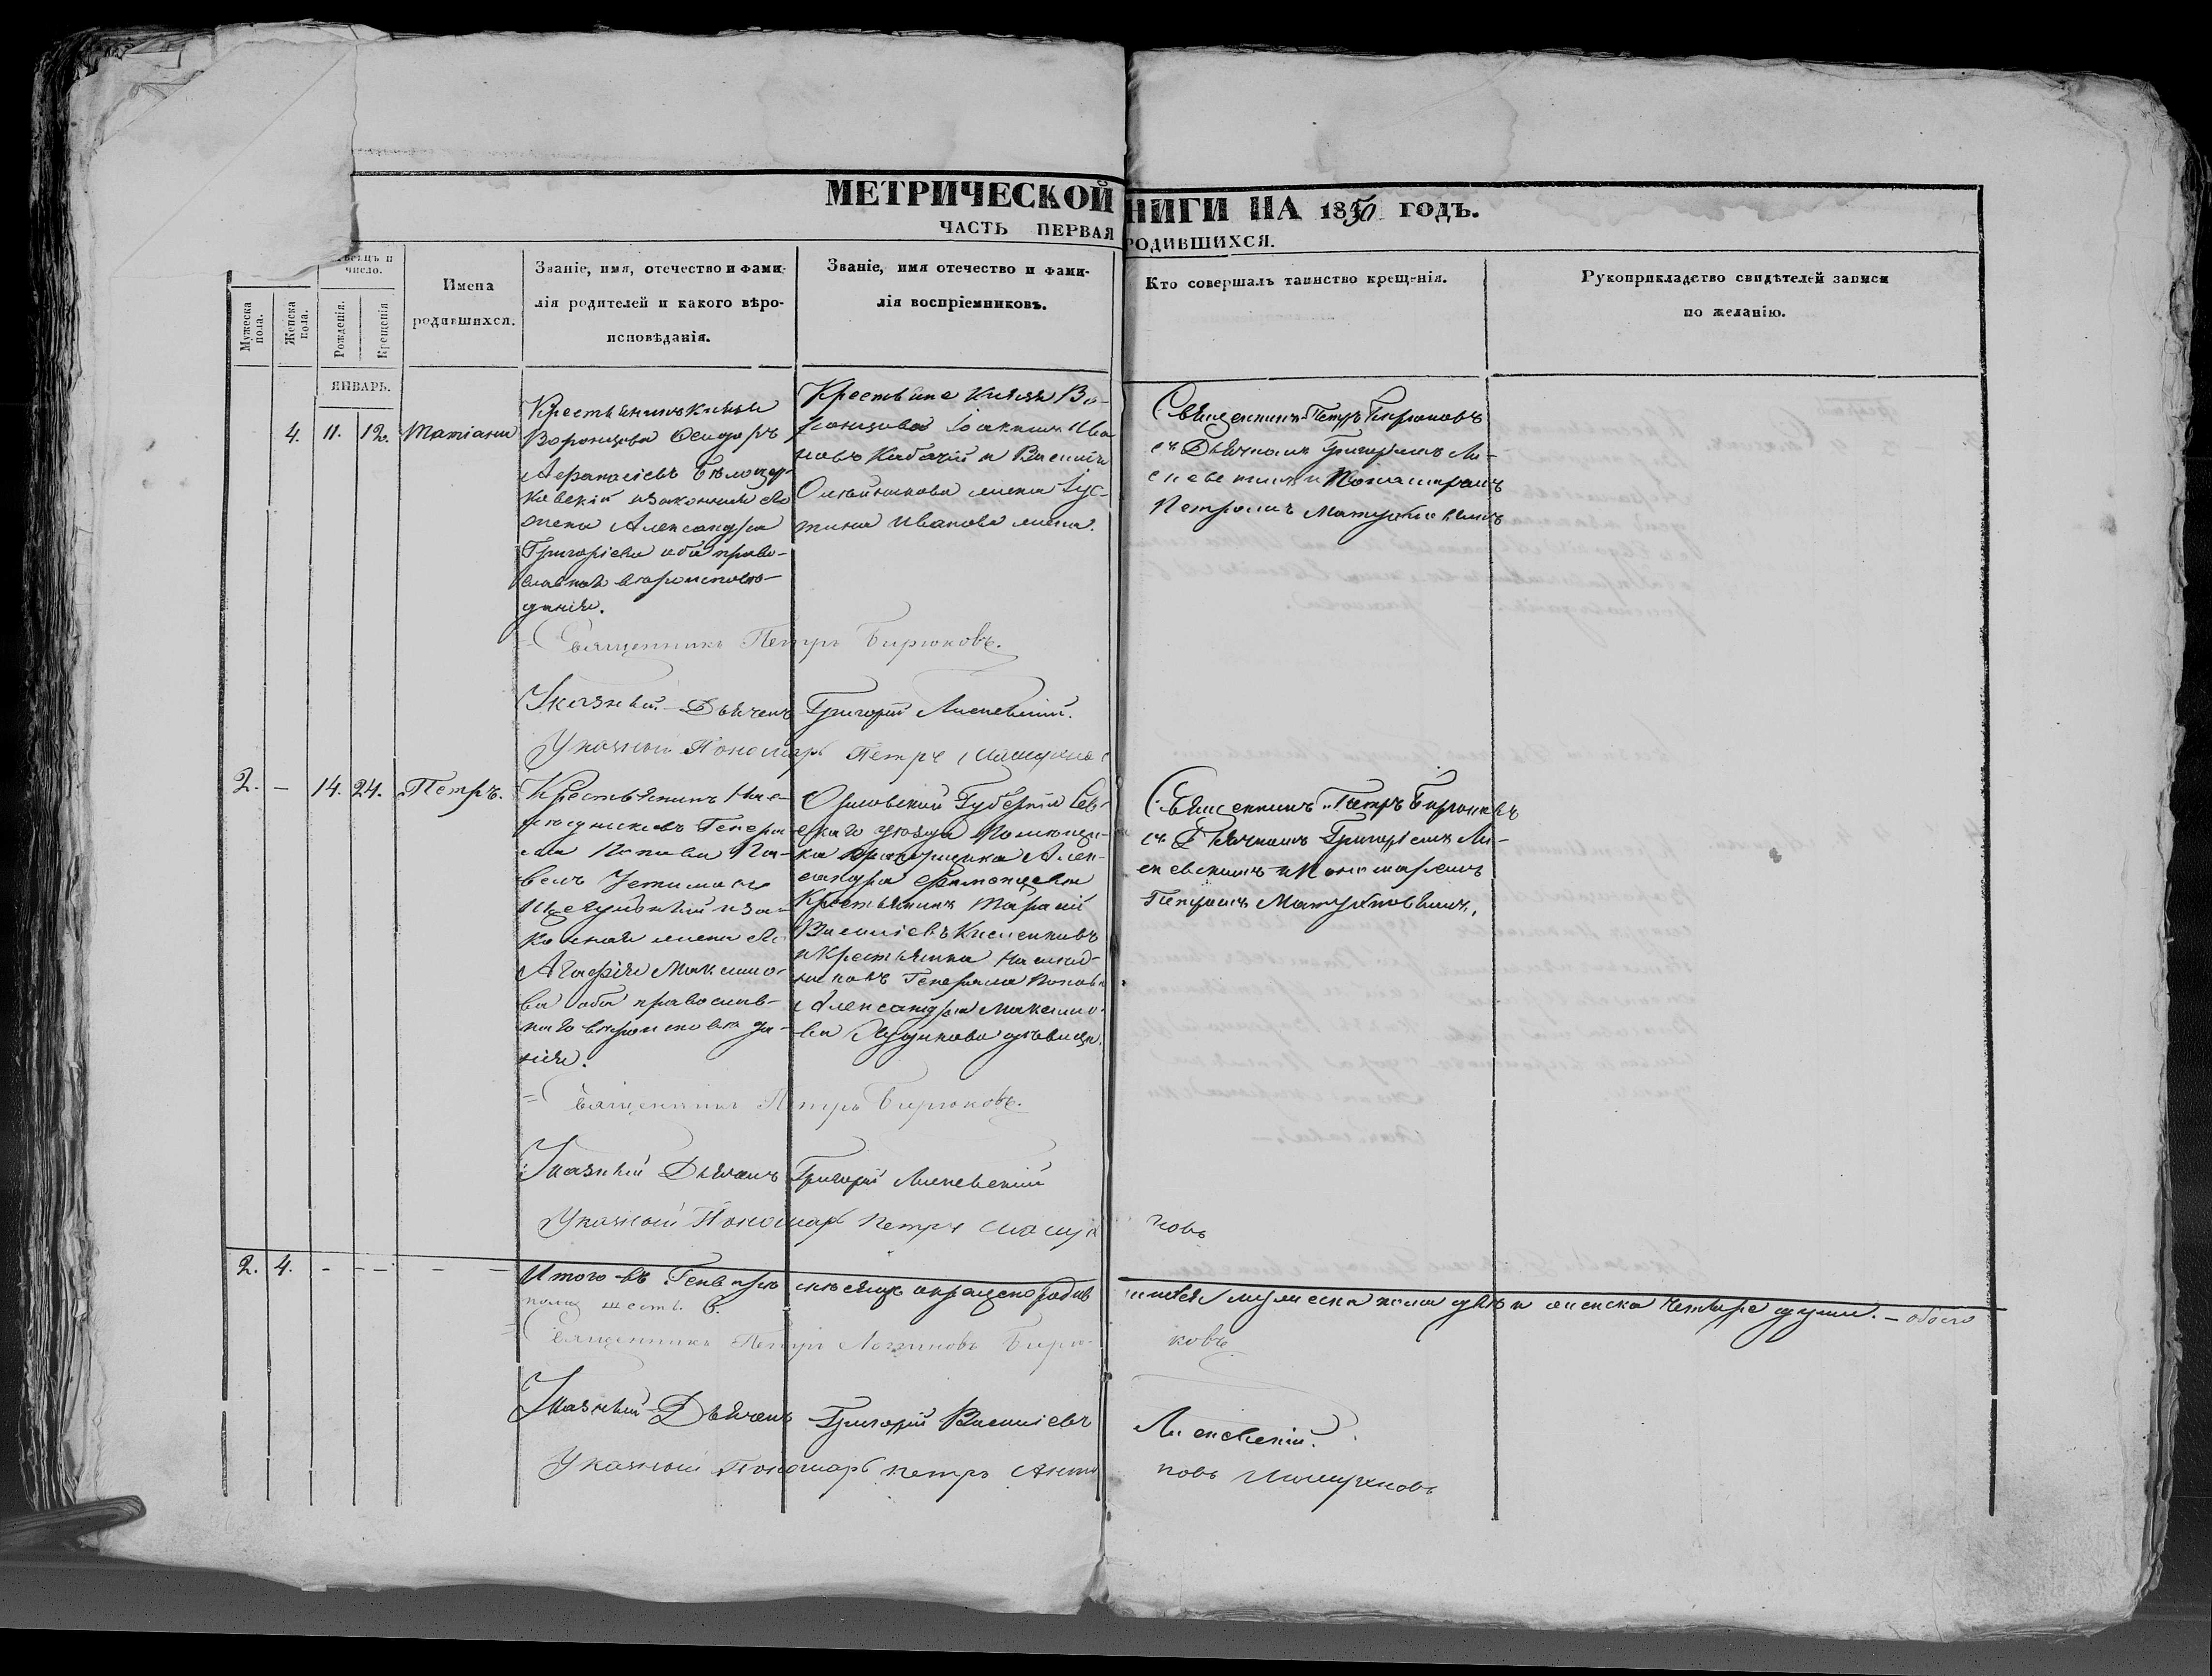 МЕТРИЧЕСКОЙ НИГИ НА 1850 ГОДЪ.
ЧАСТЬ ПЕРВАЯ РОДИВШИХСЯ.
Мужеска пола.
Женска пола.
число.
Рожденія.
Крещенія
Имена
родившихся.
Званіе, имя, отечество и фами-
лія родителей и какого вѣро-
исповѣданія.
Званіе, имя отечество и фами-
лія воспріемниковъ.
Кто совершалъ таинство крещенія.
Рукоприкладство свидѣтелей записи
по желанію.
ЯНВАРЬ.
4. 11. 12. Татіана
Крестьянинъ Князя
Воронцова Сидоръ
Аѳанасіевъ Бѣлоцер-
ковскій и законная его
жена Александра
Григоріева оба право-
славнаго вѣроисповѣ-
данія.
Крестьяне Князя Во-
ронцова Іоакимъ Ива
новъ Кабачій и Василія
Олейникова жена Іус-
тина Иванова жена.
Священникъ Петръ Бирюковъ
съ Дьячкомъ Григоріемъ Ли-
сневскимъ и Пономаремъ
Петромъ
Священникъ Петръ Бирюковъ.
Указный Дьячекъ Григорій Лисневскій.
Указной Пономарь Петръ
2. — 14. 24. Петръ.
Крестьянинъ Нас-
лѣдниковъ Генера
ла Попова Па-
велъ
и за-
конная жена его
Агафія Максимо-
ва оба православ-
наго вѣроисповѣда-
нія.
Орловской Губерніи Сев-
скаго уѣзда Помѣщи-
ка Алек-
сандра
Крестьянинъ Тарасій
Василіевъ
и Крестьянка Наслѣд-
никовъ Генерала Попова
Александра Максимо-
ва дѣвица.
Священникъ Петръ Бирюковъ
съ Дьячкомъ Григоріемъ Ли-
сневскимъ и Пономаремъ
Петромъ
Священникъ Петръ Бирюковъ.
Указный Дьячекъ Григорій Лисневскій
Указной Пономарь Петръ новъ
2. 4. - - - - -
Итого въ Генварѣ мѣсяцѣ окрещено родив шихся мужеска пола двѣ и женска четыре души. — обоего
пола шесть. 6.
Священникъ Петръ Логиновъ Бирю ковъ
Указный Дьячекъ Григорій Василіевъ Лисневскій.
Указной Пономарь Петръ Анто новъ